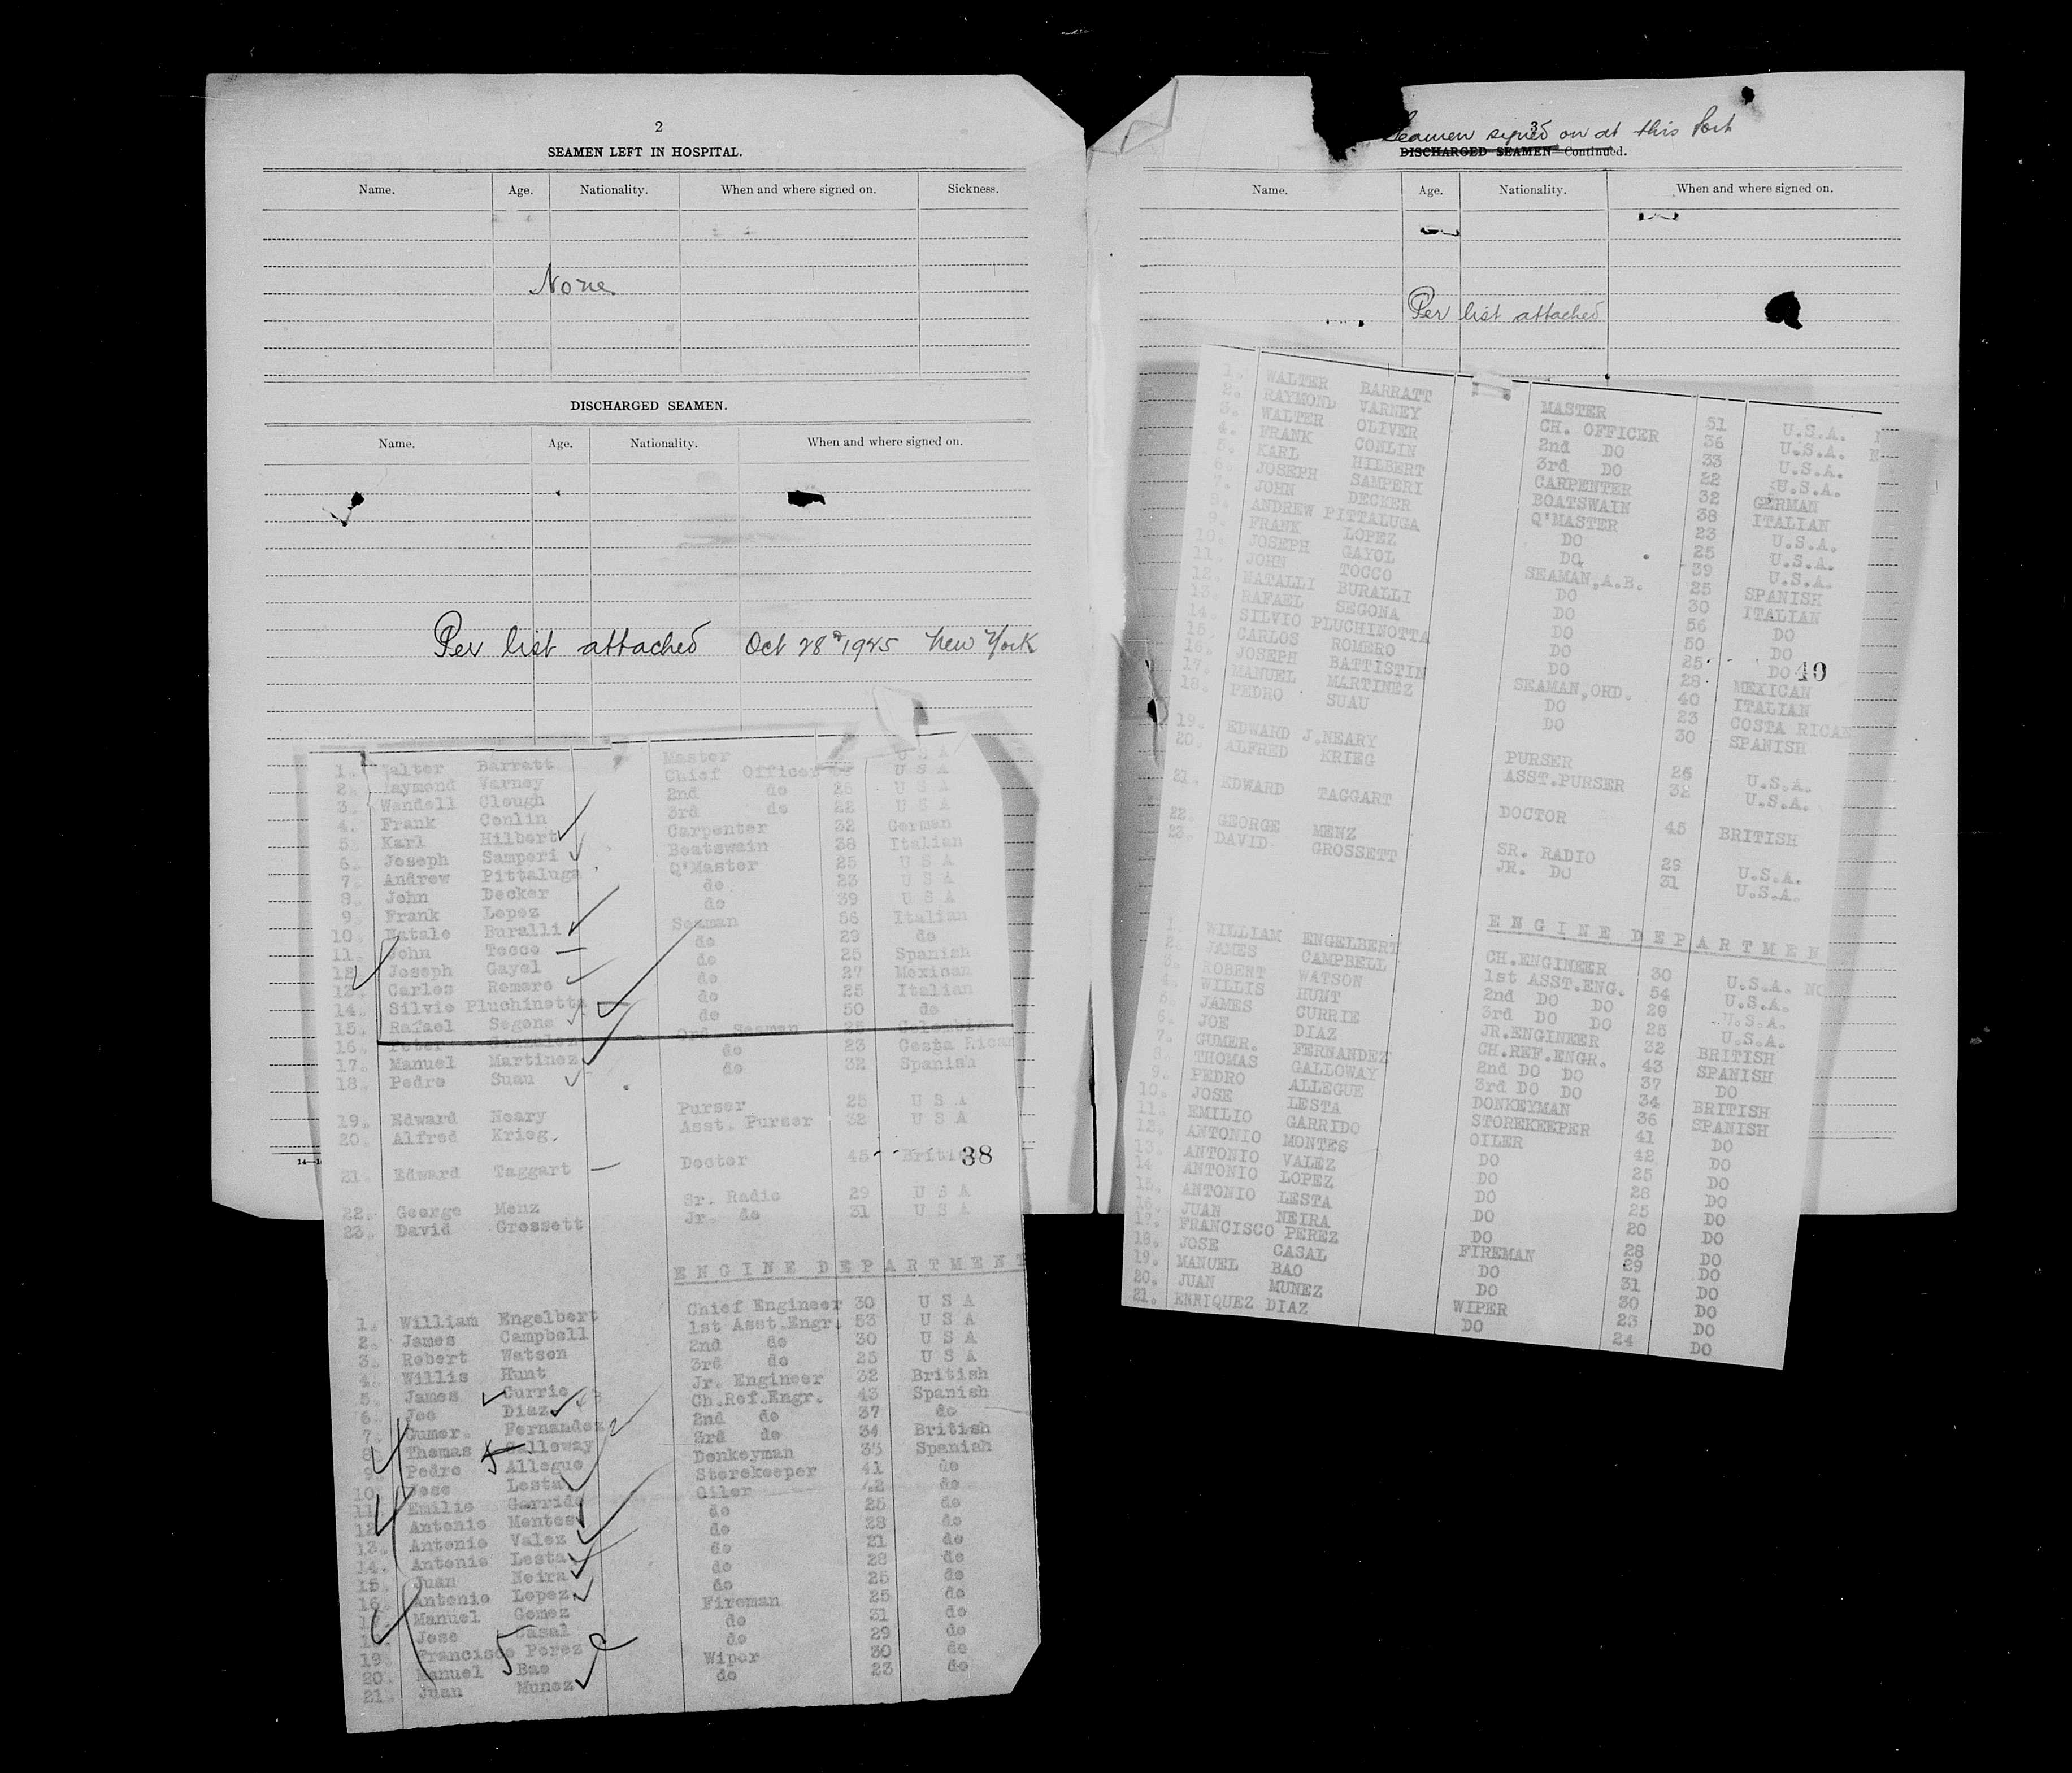 2
SEAMEN LEFT IN HOSPITAL.
Name. Age. Nationality. When and where signed on. Sickness.
None
DISCHARGED SEAMEN.
Name. Age. Nationality. When and where signed on.
Per list attached Oct 28 New York
1. Walter Barratt Master U S A
2. Raymond Varney Chief Officer U S A
3. Wendell Clough 2nd do 26 U S A
4. Frank Conlin 3rd do 22 U S A
5. Karl Hilbert Carpenter 32 German
6. Joseph Samperi Boatswain 38 Italian
7. Andrew Pittaluga Q'Master 25 U S A
8. John Decker do 23 U S A
9. Frank Lopez do 39 U S A
10. Natale Buralli Seaman 56 Italian
11. John Tocco do 29 do
12. Joseph Gayol do 25 Spanish
13. Carlos Romero do 27 Mexican
14. Silvio Pluchinotta do 25 Italian
15. Rafael Segona do 50 do
16. Peter Gonzalez Ord. Seaman 25 Colombian
17. Manuel Martinez do 23 Costa Rican
18. Pedro Suau do 32 Spanish
19. Edward Neary Purser 25 U S A
20. Alfred Krieg. Asst. Purser 32 U S A
21. Edward Taggart Doctor 45 British
38
22. George Menz Sr. Radio 29 U S A
23. David Grossett Jr. do 31 U S A
ENGINE DEPARTMENT
1. William Engelbert Chief Engineer 30 U S A
2. James Campbell 1st Asst.Engr. 53 U S A
3. Robert Watson 2nd do 30 U S A
4. Willis Hunt 3rd do 25 U S A
5. James Currie Jr. Engineer 32 British
6. Joe Diaz Ch.Ref.Engr. 43 Spanish
7. Gumer. Fernandez 2nd do 37 do
8. Thomas Galloway 3rd do 34 British
9. Pedro Allegue Donkeyman 35 Spanish
10. Jose Lesta Storekeeper 41 do
11. Emilio Garrido Oiler 42 do
12. Antonio Montes do 25 do
13. Antonio Valez do 28 do
14. Antonio Lesta do 21 do
15. Juan Neira do 28 do
16. Antonio Lopez do 25 do
17. Manuel Gomez Fireman 25 do
18. Jose Casal do 31 do
19. Francisco Perez do 29 do
20. Manuel Bao Wiper 30 do
21. Juan Munez do 23 do
3
Seamen signed on at this Port
DISCHARGED SEAMEN—Continued.
Name. Age. Nationality. When and where signed on.
Per list attached
1. WALTER BARRATT MASTER 51 U.S.A.
2. RAYMOND VARNEY CH. OFFICER 36 U.S.A.
3. WALTER OLIVER 2nd DO 33 U.S.A.
4. FRANK CONLIN 3rd DO 22 U.S.A.
5. KARL HILBERT CARPENTER 32 GERMAN
6. JOSEPH SAMPERI BOATSWAIN 38 ITALIAN
7. JOHN DECKER Q'MASTER 23 U.S.A.
8. ANDREW PITTALUGA DO 25 U.S.A.
9. FRANK LOPEZ DO 39 U.S.A.
10. JOSEPH GAYOL SEAMAN,A.B. 25 SPANISH
11. JOHN TOCCO DO 30 ITALIAN
12. NATALLI BURALLI DO 56 DO
13. RAFAEL SEGONA DO 50 DO
14. SILVIO PLUCHINOTTA DO 25 DO
40
15. CARLOS ROMERO DO 28 MEXICAN
16. JOSEPH BATTISTIN SEAMAN,ORD. 40 ITALIAN
17. MANUEL MARTINEZ DO 23 COSTA RICAN
18. PEDRO SUAU DO 30 SPANISH
19. EDWARD J.NEARY PURSER 26 U.S.A.
20. ALFRED KRIEG ASST.PURSER 32 U.S.A.
21. EDWARD TAGGART DOCTOR 45 BRITISH
22. GEORGE MENZ SR. RADIO 29 U.S.A.
23. DAVID GROSSETT JR. DO 31 U.S.A.
ENGINE DEPARTMEN
1. WILLIAM ENGELBERT CH.ENGINEER 30 U.S.A.
2. JAMES CAMPBELL 1st ASST.ENG. 54 U.S.A.
3. ROBERT WATSON 2nd DO DO 29 U.S.A.
4. WILLIS HUNT 3rd DO DO 25 U.S.A.
5. JAMES CURRIE JR.ENGINEER 32 BRITISH
6. JOE DIAZ CH.REF.ENGR. 43 SPANISH
7. GUMER. FERNANDEZ 2nd DO DO 37 DO
8. THOMAS GALLOWAY 3rd DO DO 34 BRITISH
9. PEDRO ALLEGUE DONKEYMAN 36 SPANISH
10. JOSE LESTA STOREKEEPER 41 DO
11. EMILIO GARRIDO OILER 42 DO
12. ANTONIO MONTES DO 25 DO
13. ANTONIO VALEZ DO 28 DO
14. ANTONIO LOPEZ DO 25 DO
15. ANTONIO LESTA DO 20 DO
16. JUAN NEIRA DO 28 DO
17. FRANCISCO PEREZ FIREMAN 29 DO
18. JOSE CASAL DO 31 DO
19. MANUEL BAO DO 30 DO
20. JUAN MUNEZ WIPER 23 DO
21. ENRIQUEZ DIAZ DO 24 DO